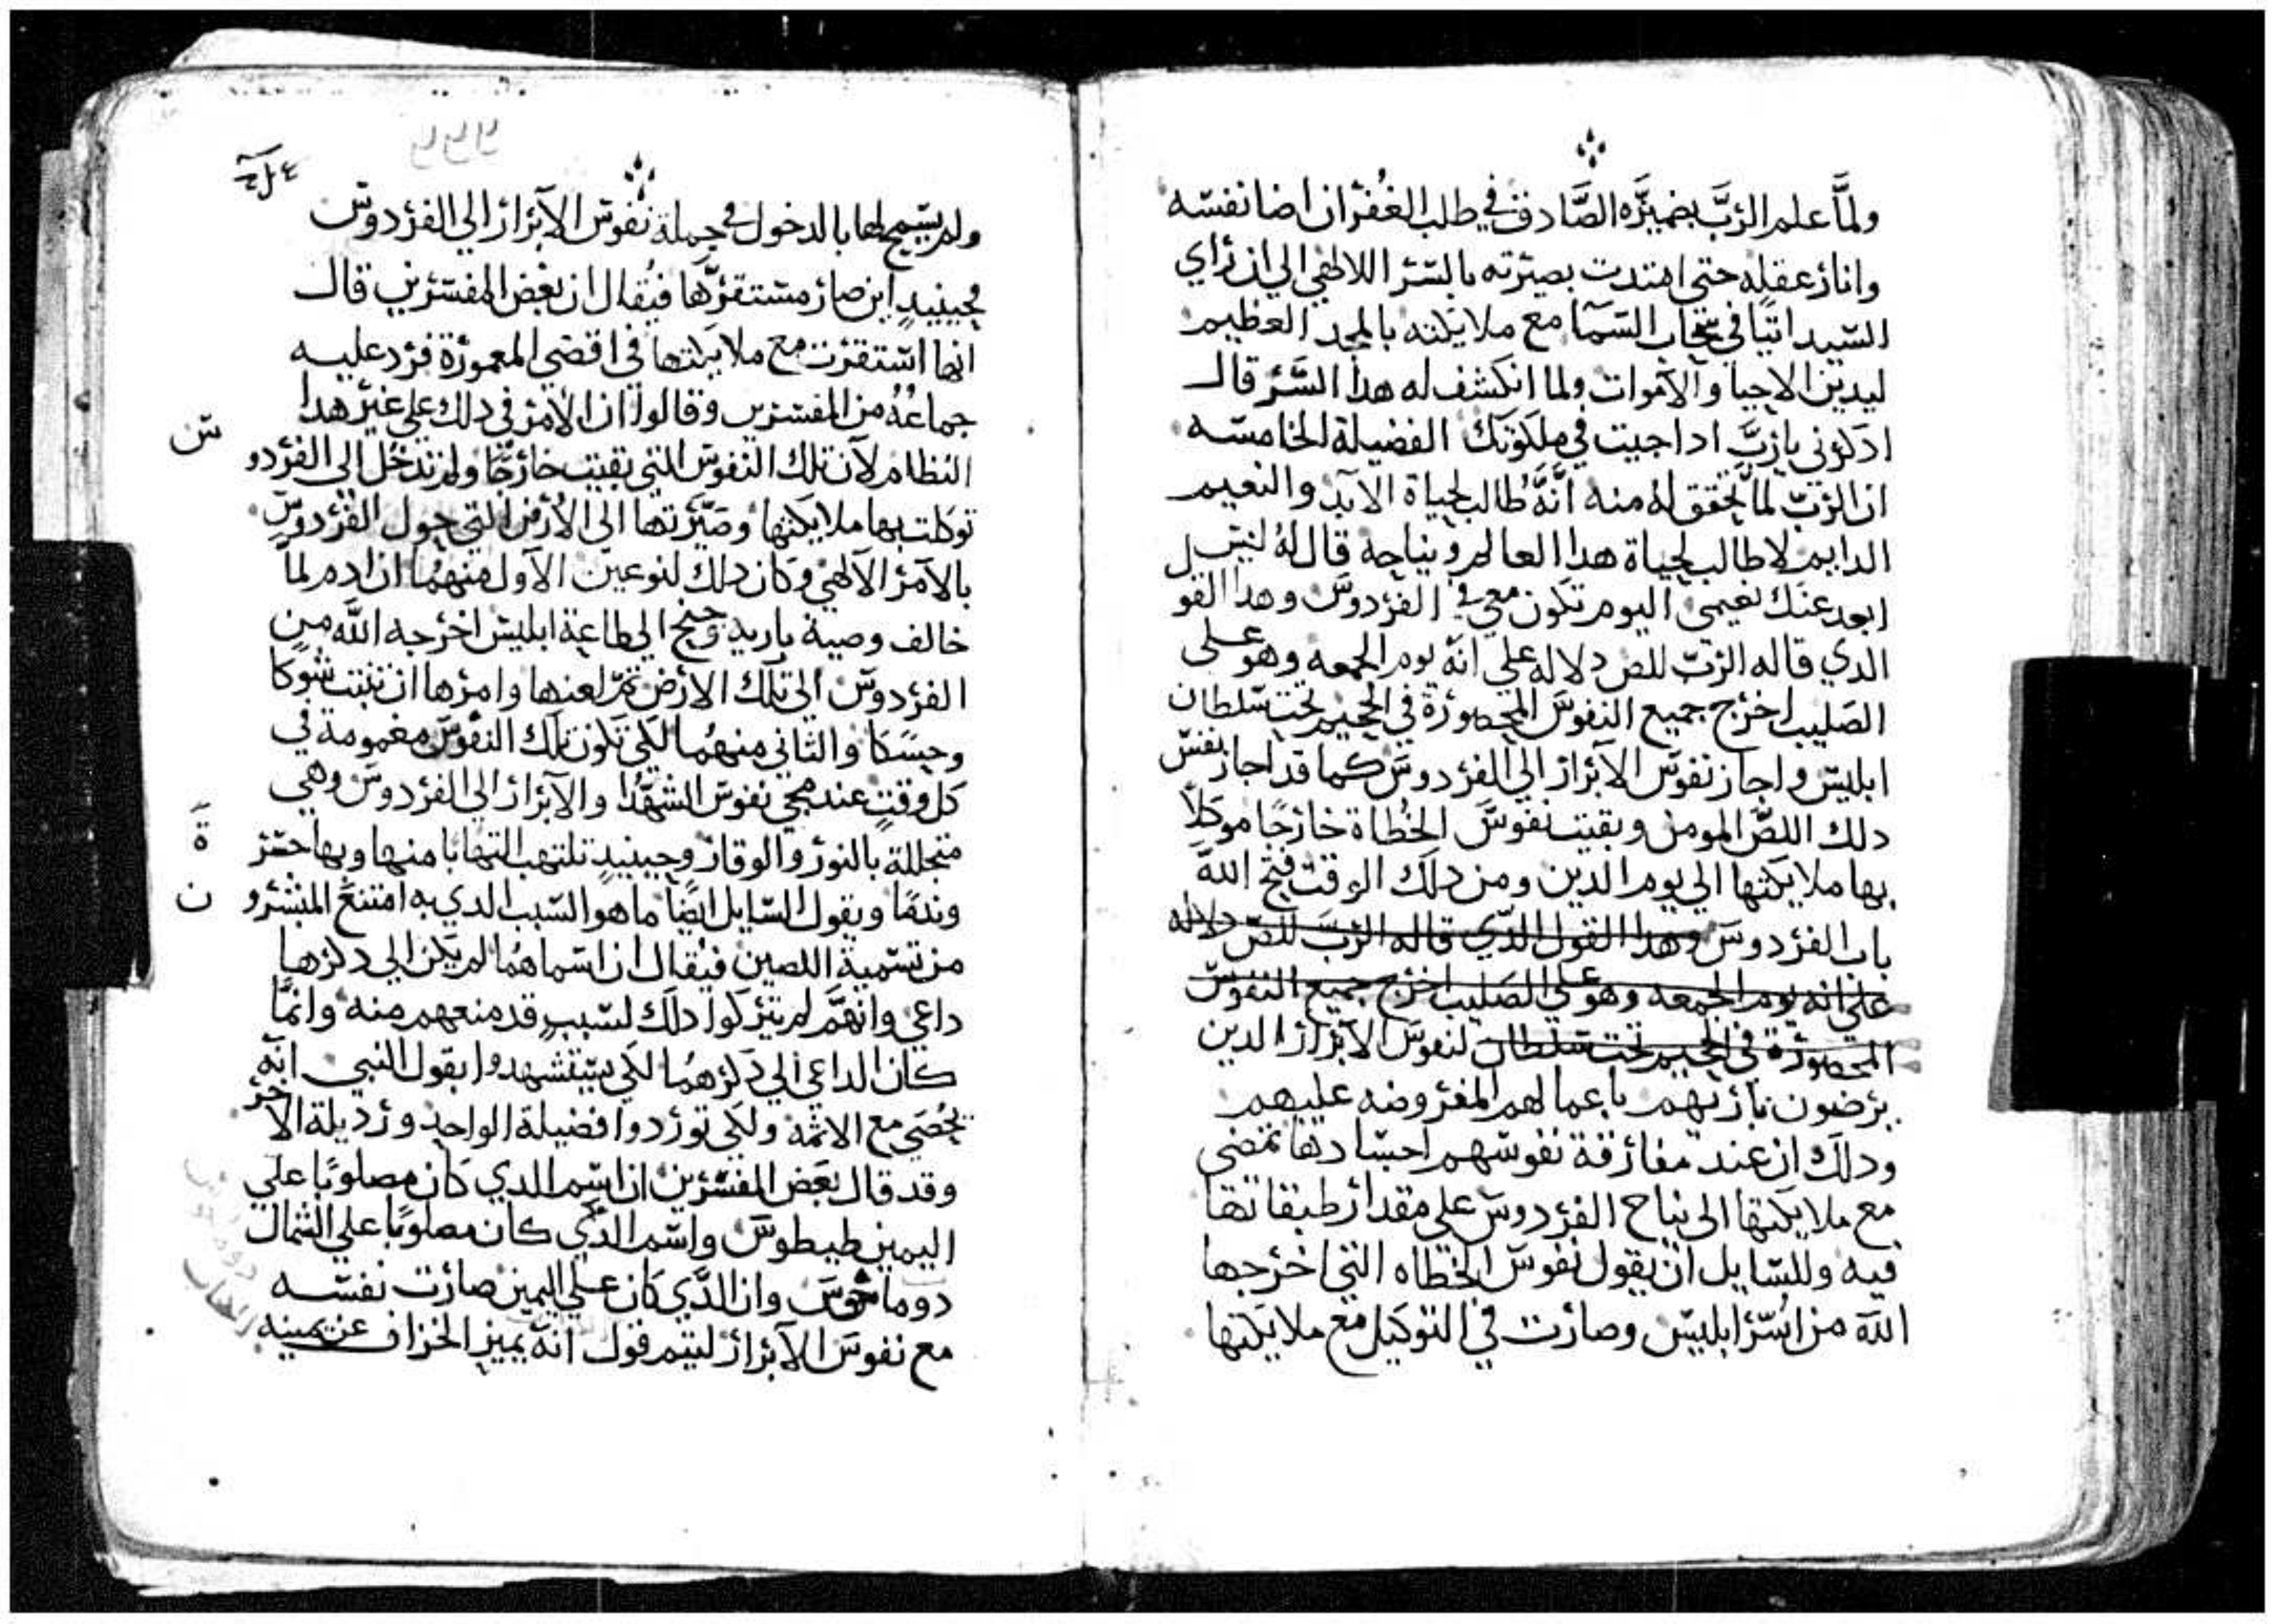 ولمَّا علم الربَّ بضميره الصَّادق في طلب الغُفران اضا نفسه
وانار عقله حتى اهتدت بصيرته بالسر اللالهي الي ان راي
السيد اتيًا في سحاب السمآ مع ملايكته بالمجد العظيم
ليدين الاحيا والاموات ولما انكشف له هدا السَّر قال
ادكرني يارب ادا جيت في ملكوتك الفضيلة الخامسه
ان الربّ لمَّا تحقق لهُ منه انَّهُ طالب لحياة الابد والنعيم
الدايم لا طالب لحياة هدا العالم ونياحه قال لهُ ليس
ابعد عنك نعيمي اليوم تكون معي في الفردوس وهدا القول
الدي قاله الربّ للص دلاله علي انه يوم الجمعه وهو علي
الصليب اخرج جميع النفوس المحصورة في الجحيم تحت سلطان
ابليس واجاز نفوس الابرار الي الفردوس كما قد اجاز نفس
دلك اللصَّ المومن وبقيت نفوسَ الخُطاة خارجًا موكلاً
بها ملايكتها الي يوم الدين ومن دلك الوقت فتح الله
باب الفردوس وهدا القول الدي قاله الربَّ للصّ دلاله
علي انه يوم الجمعه وهو علي الصليب اخرج جميع النفوس
المحصورة في الجحيم تحت سلطان لنفوس الابرار الدين
يرضون بارئهم باعمالهم المفروضه عليهم
ودلك ان عند مفارقة نفوسهم اجسادها تمضي
مع ملايكتها الى نياح الفردوس علي مقدار طبقاتها
فيه وللسايل ان يقول نفوس الخطاه التي اخرجها
اللّه من اُسر ابليس وصارت في التوكيل مع ملايكتها
ولم يسمح لها بالدخول في جملة نفوس الابرار الي الفردوس
فحينيدٍ اين صار مستقرَّها فيُقال ان بعض المفسرين قال
انها استقرت مع ملايكتها في اقصي المعمورة فرد عليه
جماعةُ من المفسرين وقالوا ان الامر في دلك علي غير هدا
النظام لان تلك النفوس التي بقيت خارجًا ولم تدخل الي الفردوس
توكلت بها ملايكتها وصيَّرتها الي الارض التي حول الفردوس
بالامر الالهي وكان دلك لنوعين الاول منهمُا ان ادم لما
خالف وصية باريه وجنح الي طاعة ابليس اخرجه اللَّه من
الفردوس الي تلك الارض ثمّ لعنها وامرها ان تنبت شوكًا
وحسكًا والثاني منهمُا لكي تكون تلك النفوس مغمومة في
كل وقتٍ عند مجي نفوس الشهدا والابرار الي الفردوس وهي
متجللة بالنور والوقار وحينيدٍ تلتهب التهابًا منها وبها حسرة
وندمًا ويقول السايل ايضًا ما هو السبب الدي به امتنع المبشرون
من تسمية اللصين فيُقال ان اسماهمُا لم يكن الي دكرها
داعي وانهمَّ لم يتركوا دلك لسببٍ قد منعهم منه وانمَّا
كان الداعي الي دكرهمُا لكي يستشهدوا بقول النبي انه
يُحصَي مع الاثمة ولكي توردوا فضيلة الواحد ورديلة الاخر
وقد قال بعض المفسرين ان اسم الدي كان مصلوبًا علي
اليمين طيطوس واسم الدي كان مصلوبًا علي الشمال
دوماخوس وان الدَّي كان علي اليمين صارت نفسه
مع نفوس الابرار ليتم قول انه يميز الخراف عن يمينه